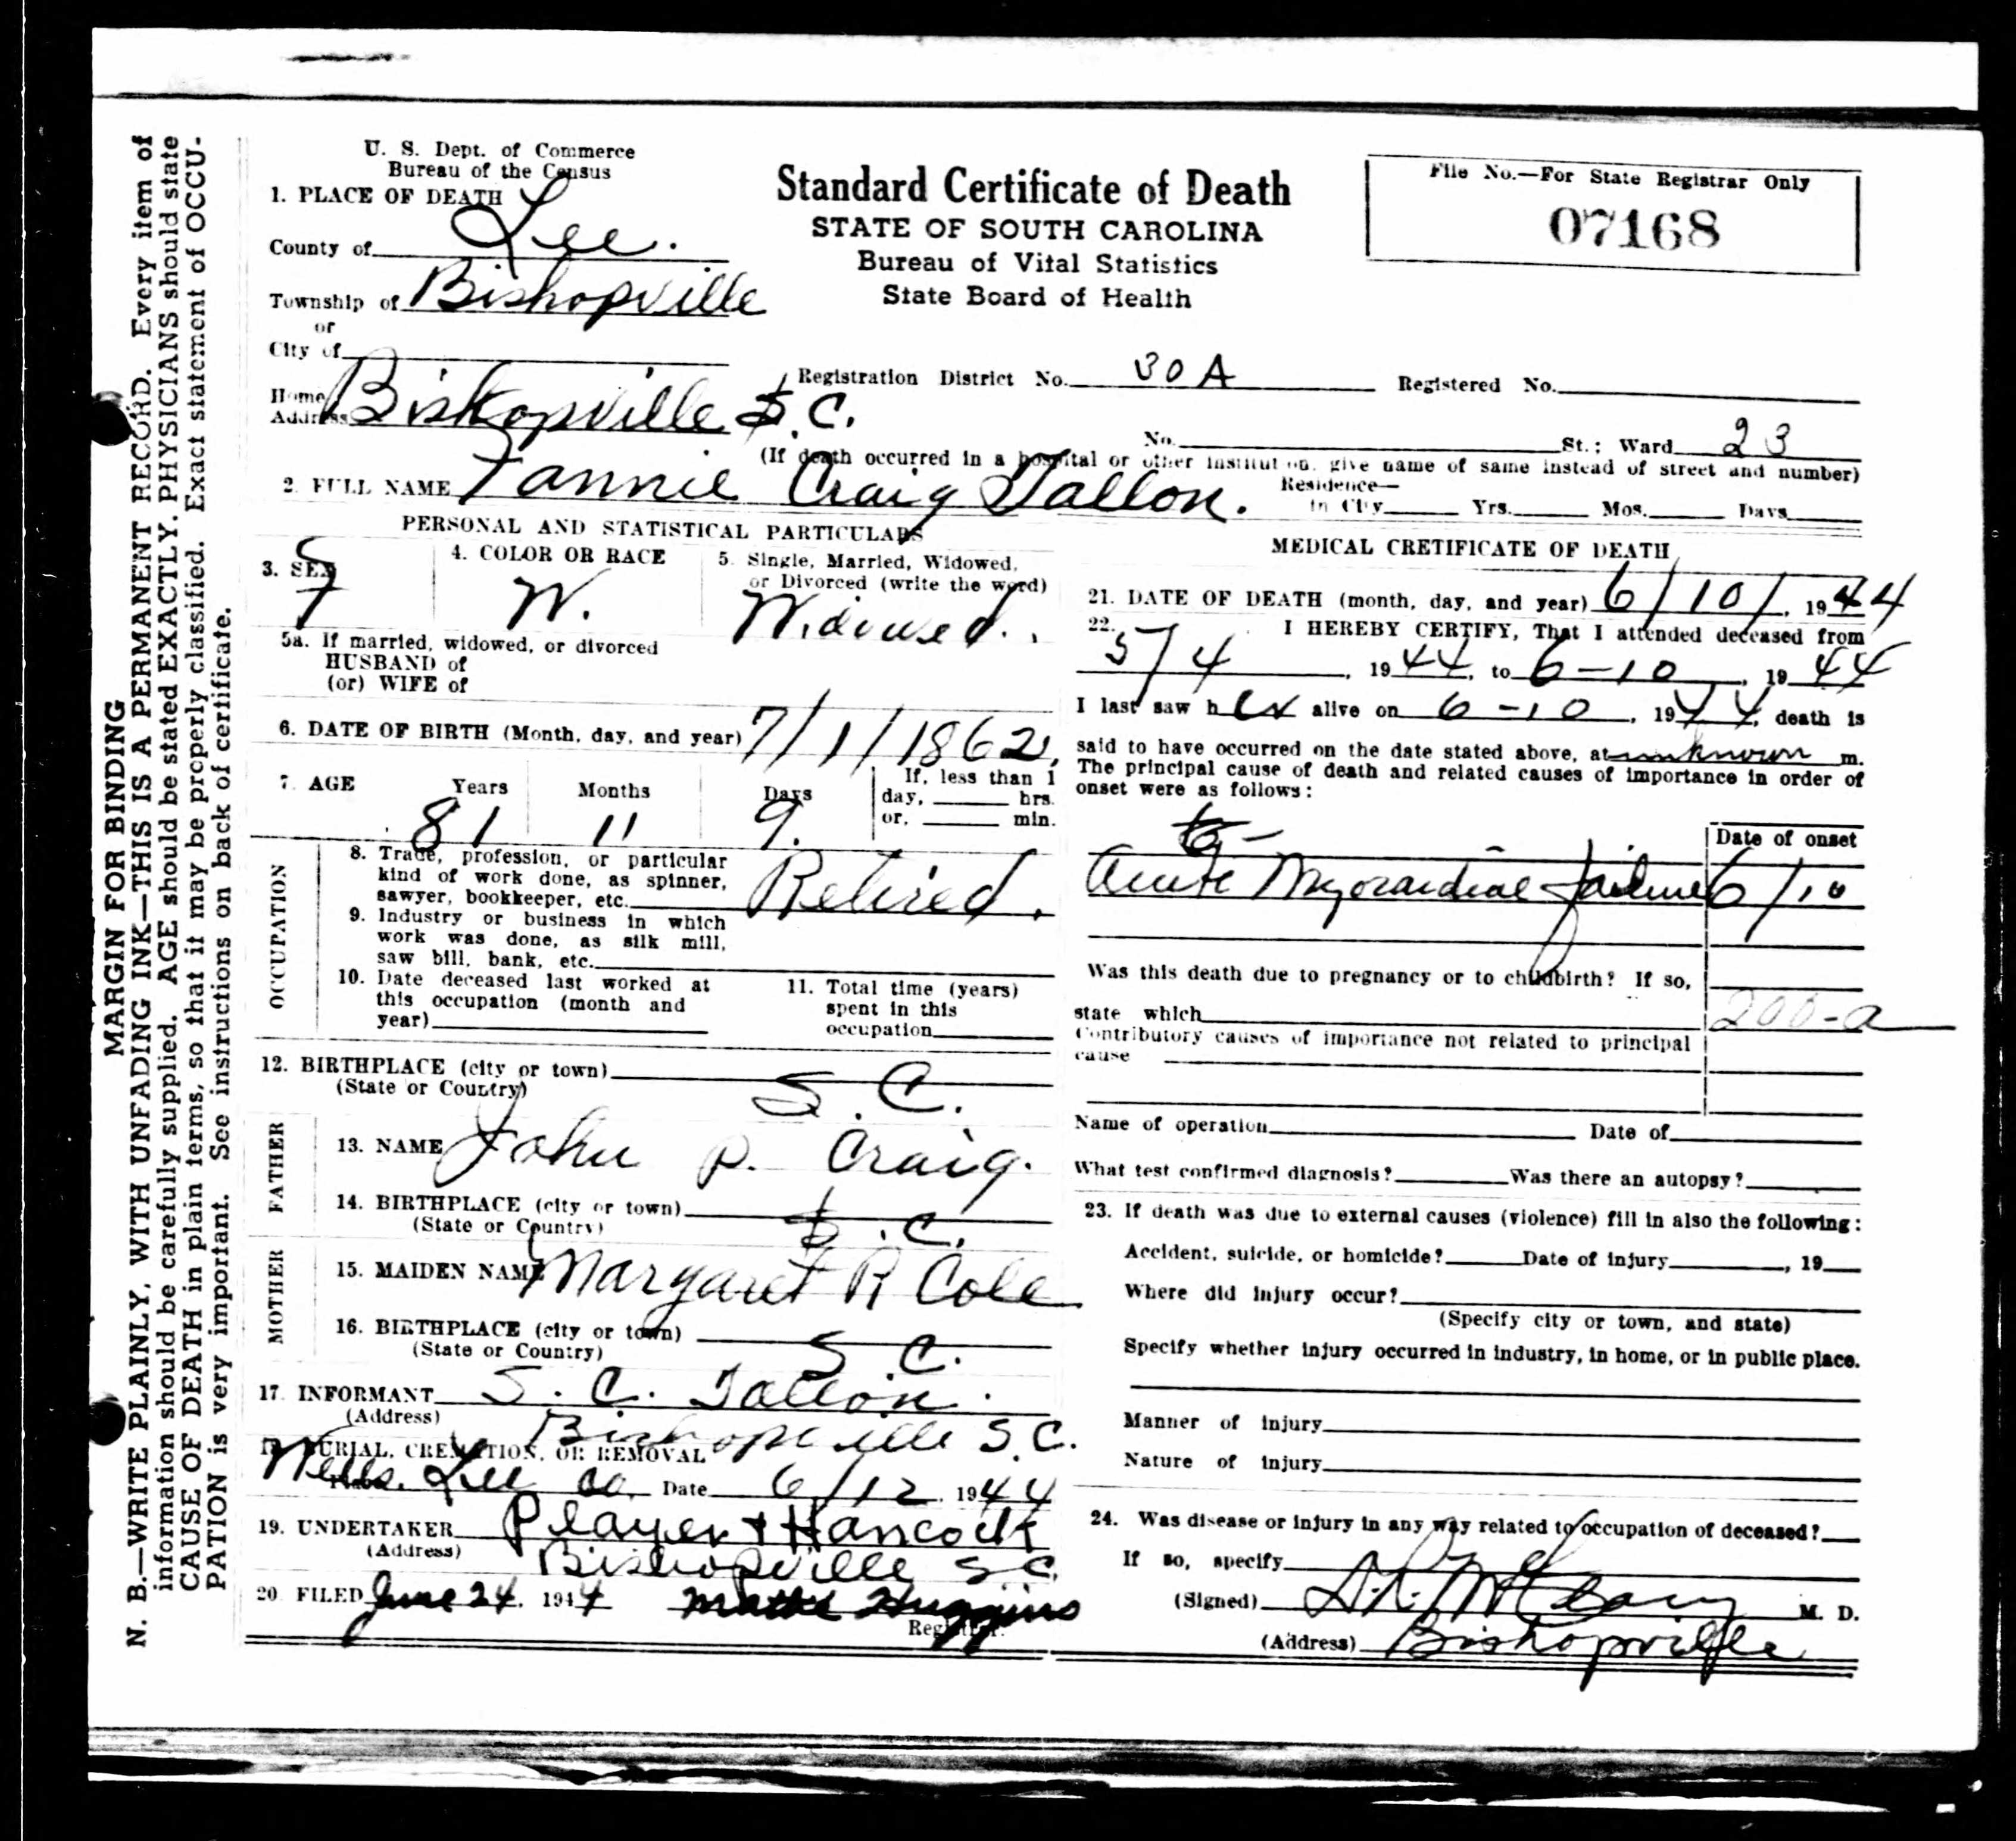 MARGIN FOR BINDING
N. B.—WRITE PLAINLY, WITH UNFADING INK—THIS IS A PERMANENT RECORD. Every item of
information should be carefully supplied. AGE should be stated EXACTLY. PHYSICIANS should state
CAUSE OF DEATH in plain terms, so that it may be properly classified. Exact statement of OCCU-
PATION is very important. See instructions on back of certificate.
U. S. Dept. of Commerce
Bureau of the Census
Standard Certificate of Death
STATE OF SOUTH CAROLINA
Bureau of Vital Statistics
State Board of Health
File No.—For State Registrar Only
07168
1. PLACE OF DEATH
County of Lee.
Township of Bishopville
or
City of
Home Address Bishopville S.C.
Registration District No. 30A Registered No.
No. St.; Ward 23
(If death occurred in a hospital or other institution, give name of same instead of street and number)
2. FULL NAME Fannie Craig Tallon.
Residence—
In City Yrs. Mos. Days
PERSONAL AND STATISTICAL PARTICULARS
3. SEX F
4. COLOR OR RACE W.
5. Single, Married, Widowed,
or Divorced (write the word)
Widowed.
5a. If married, widowed, or divorced
HUSBAND of
(or) WIFE of
6. DATE OF BIRTH (Month, day, and year) 7/1/1862
7. AGE Years Months Days
81 11 9.
If, less than 1
day, hrs.
or, min.
OCCUPATION
8. Trade, profession, or particular
kind of work done, as spinner,
sawyer, bookkeeper, etc. Retired.
9. Industry or business in which
work was done, as silk mill,
saw bill, bank, etc.
10. Date deceased last worked at
this occupation (month and
year)
11. Total time (years)
spent in this
occupation
12. BIRTHPLACE (city or town)
(State or Country) S.C.
FATHER
13. NAME John P. Craig.
14. BIRTHPLACE (city or town)
(State or Country) S.C.
MOTHER
15. MAIDEN NAME Margaret R Cole
16. BIRTHPLACE (city or town)
(State or Country) S C.
17. INFORMANT S. C. Tallon.
(Address) Bishopville S.C.
18. BURIAL, CREMATION, OR REMOVAL
Place Wells. Lee Co. Date 6/12 1944
19. UNDERTAKER Player + Hancock
(Address) Bishopville S C
20. FILED June 24, 1944 Huggins
Registrar.
MEDICAL CRETIFICATE OF DEATH
21. DATE OF DEATH (month, day, and year) 6/10/, 1944
22. I HEREBY CERTIFY, That I attended deceased from
5/4, 1944, to 6-10, 1944
I last saw her alive on 6-10, 1944, death is
said to have occurred on the date stated above, at unknown m.
The principal cause of death and related causes of importance in order of
onset were as follows:
Date of onset
Acute Myocardial failure 6/10
Was this death due to pregnancy or to childbirth? If so,
state which
200-a
Contributory causes of importance not related to principal
cause
Name of operation Date of
What test confirmed diagnosis? Was there an autopsy?
23. If death was due to external causes (violence) fill in also the following:
Accident, suicide, or homicide? Date of injury , 19
Where did injury occur?
(Specify city or town, and state)
Specify whether injury occurred in industry, in home, or in public place.
Manner of injury
Nature of injury
24. Was disease or injury in any way related to occupation of deceased?
If so, specify
(Signed) M. D.
(Address) Bishopville